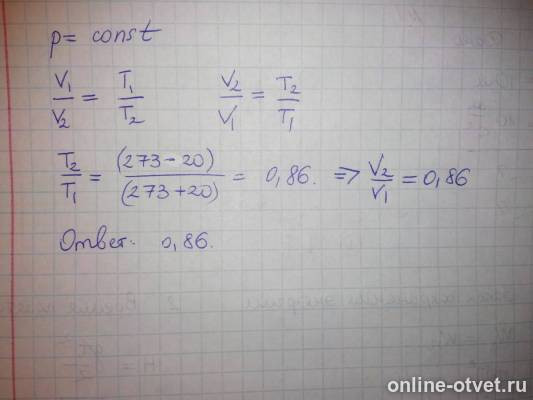 p = const
V₁/V₂ = T₁/T₂ V₂/V₁ = T₂/T₁
T₂/T₁ = (273-20)/(273+20) = 0,86. => V₂/V₁ = 0,86
Ответ: 0,86.
online-otvet.ru